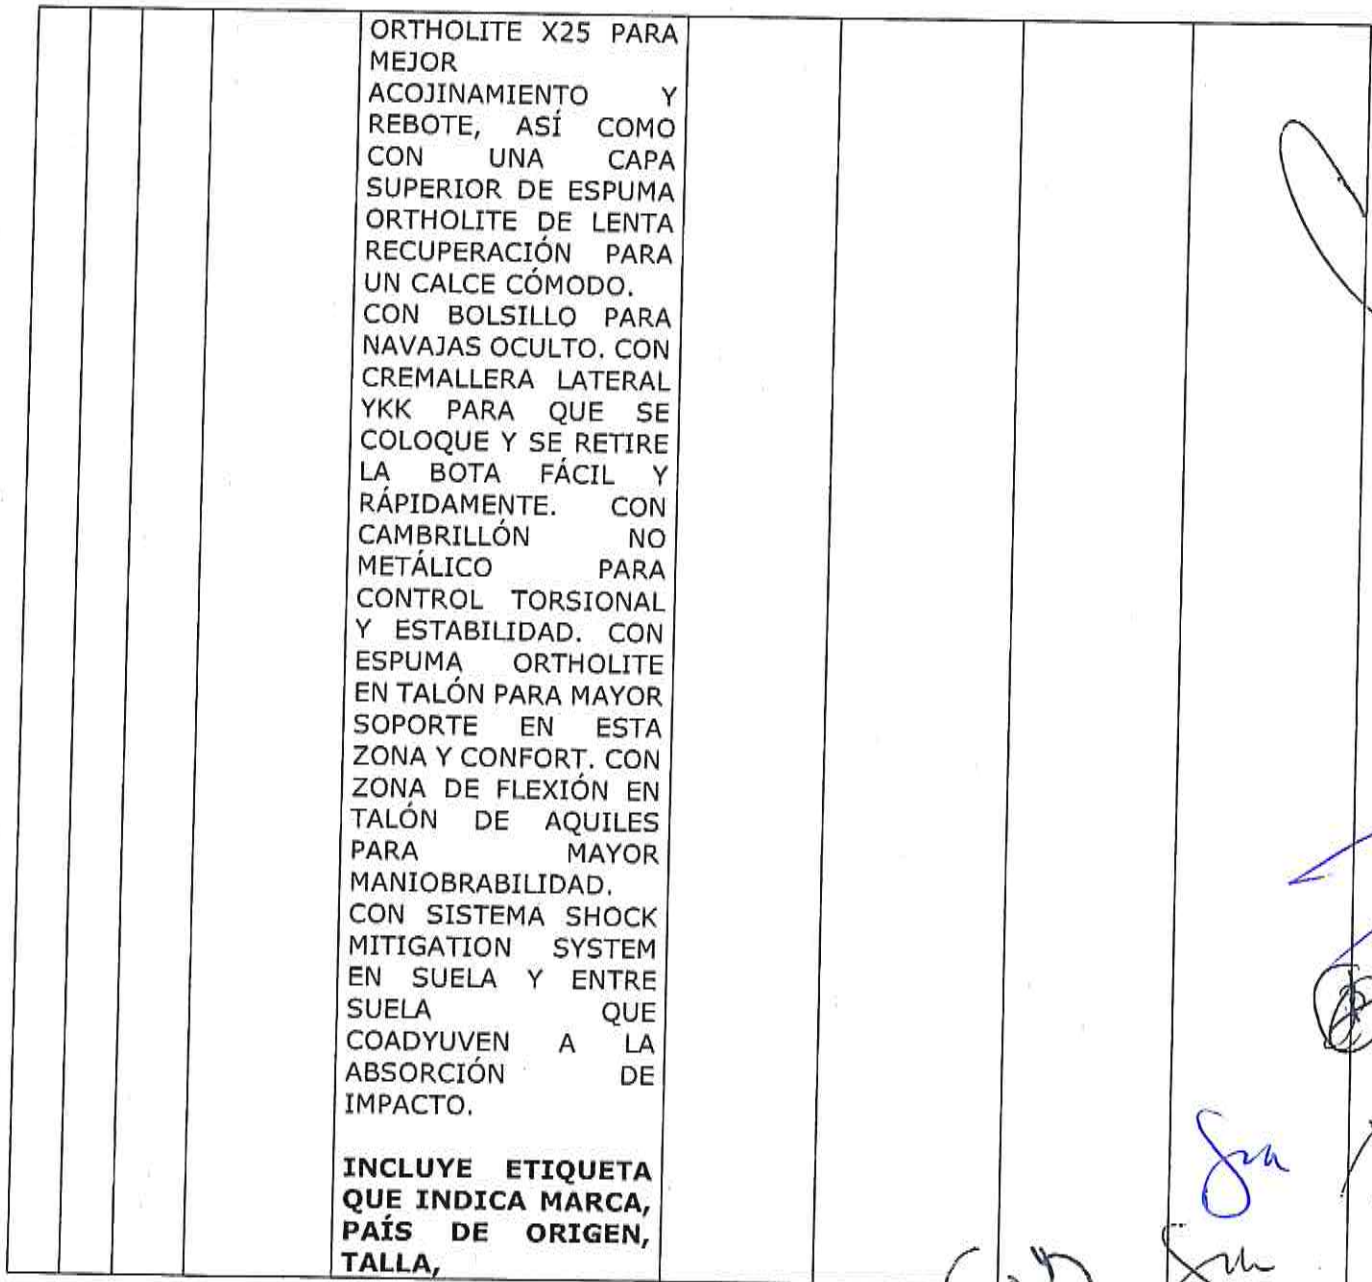 ORTHOLITE X25 PARA
MEJOR
ACOJINAMIENTO Y
REBOTE, ASÍ COMO
CON UNA CAPA
SUPERIOR DE ESPUMA
ORTHOLITE DE LENTA
RECUPERACIÓN PARA
UN CALCE CÓMODO.
CON BOLSILLO PARA
NAVAJAS OCULTO. CON
CREMALLERA LATERAL
YKK PARA QUE SE
COLOQUE Y SE RETIRE
LA BOTA FÁCIL Y
RÁPIDAMENTE. CON
CAMBRILLÓN NO
METÁLICO PARA
CONTROL TORSIONAL
Y ESTABILIDAD. CON
ESPUMA ORTHOLITE
EN TALÓN PARA MAYOR
SOPORTE EN ESTA
ZONA Y CONFORT. CON
ZONA DE FLEXIÓN EN
TALÓN DE AQUILES
PARA MAYOR
MANIOBRABILIDAD.
CON SISTEMA SHOCK
MITIGATION SYSTEM
EN SUELA Y ENTRE
SUELA QUE
COADYUVEN A LA
ABSORCIÓN DE
IMPACTO.
INCLUYE ETIQUETA
QUE INDICA MARCA,
PAÍS DE ORIGEN,
TALLA,